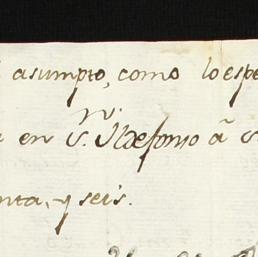 asumpto, como lo espe
en S.ⁿ Yldefonso â
nta, y seis.